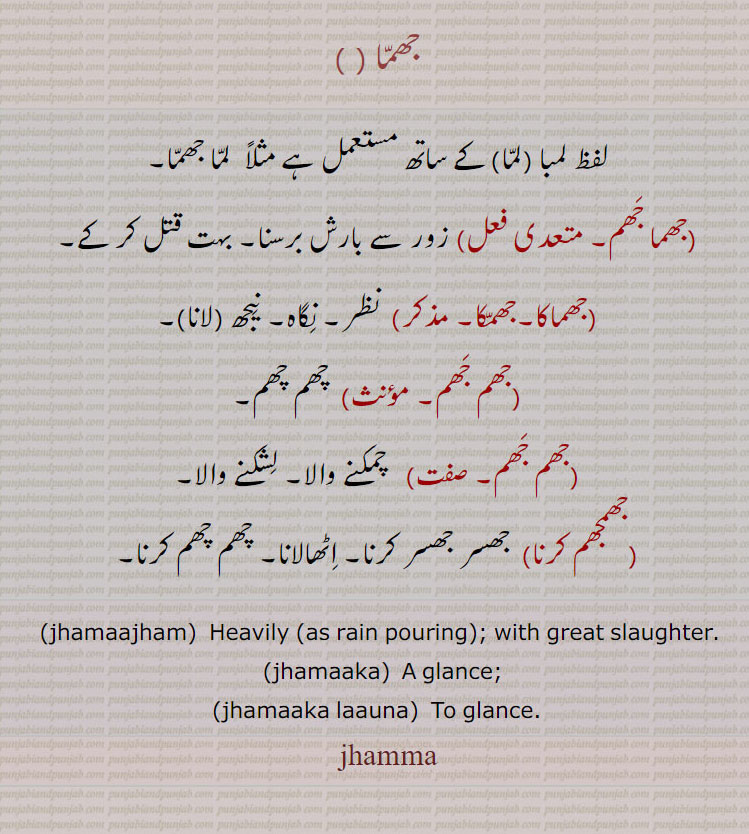 جھمّا ( )
لفظ لمبا (لمّا) کے ساتھ مستعمل ہے مثلاً لمّا جھمّا۔
(جھما جَھم۔ متعدی فعل) زور سے بارش برسنا۔ بہت قتل کر کے۔
(جھماکا۔ جھمّکا۔ مذکر) نظر۔ نِگاہ۔ نیجھ (لانا)۔
(جھم جَھم۔ مؤنث) چھم چھم۔
(جھم جَھم۔ صفت) چمکنے والا۔ لِشکنے والا۔
(جھمجھم کرنا) جھسر جھسر کرنا۔ اِٹھالانا۔ چھم چھم کرنا۔
(jhamaajham) Heavily (as rain pouring); with great slaughter.
(jhamaaka) A glance;
(jhamaaka laauna) To glance.
jhamma